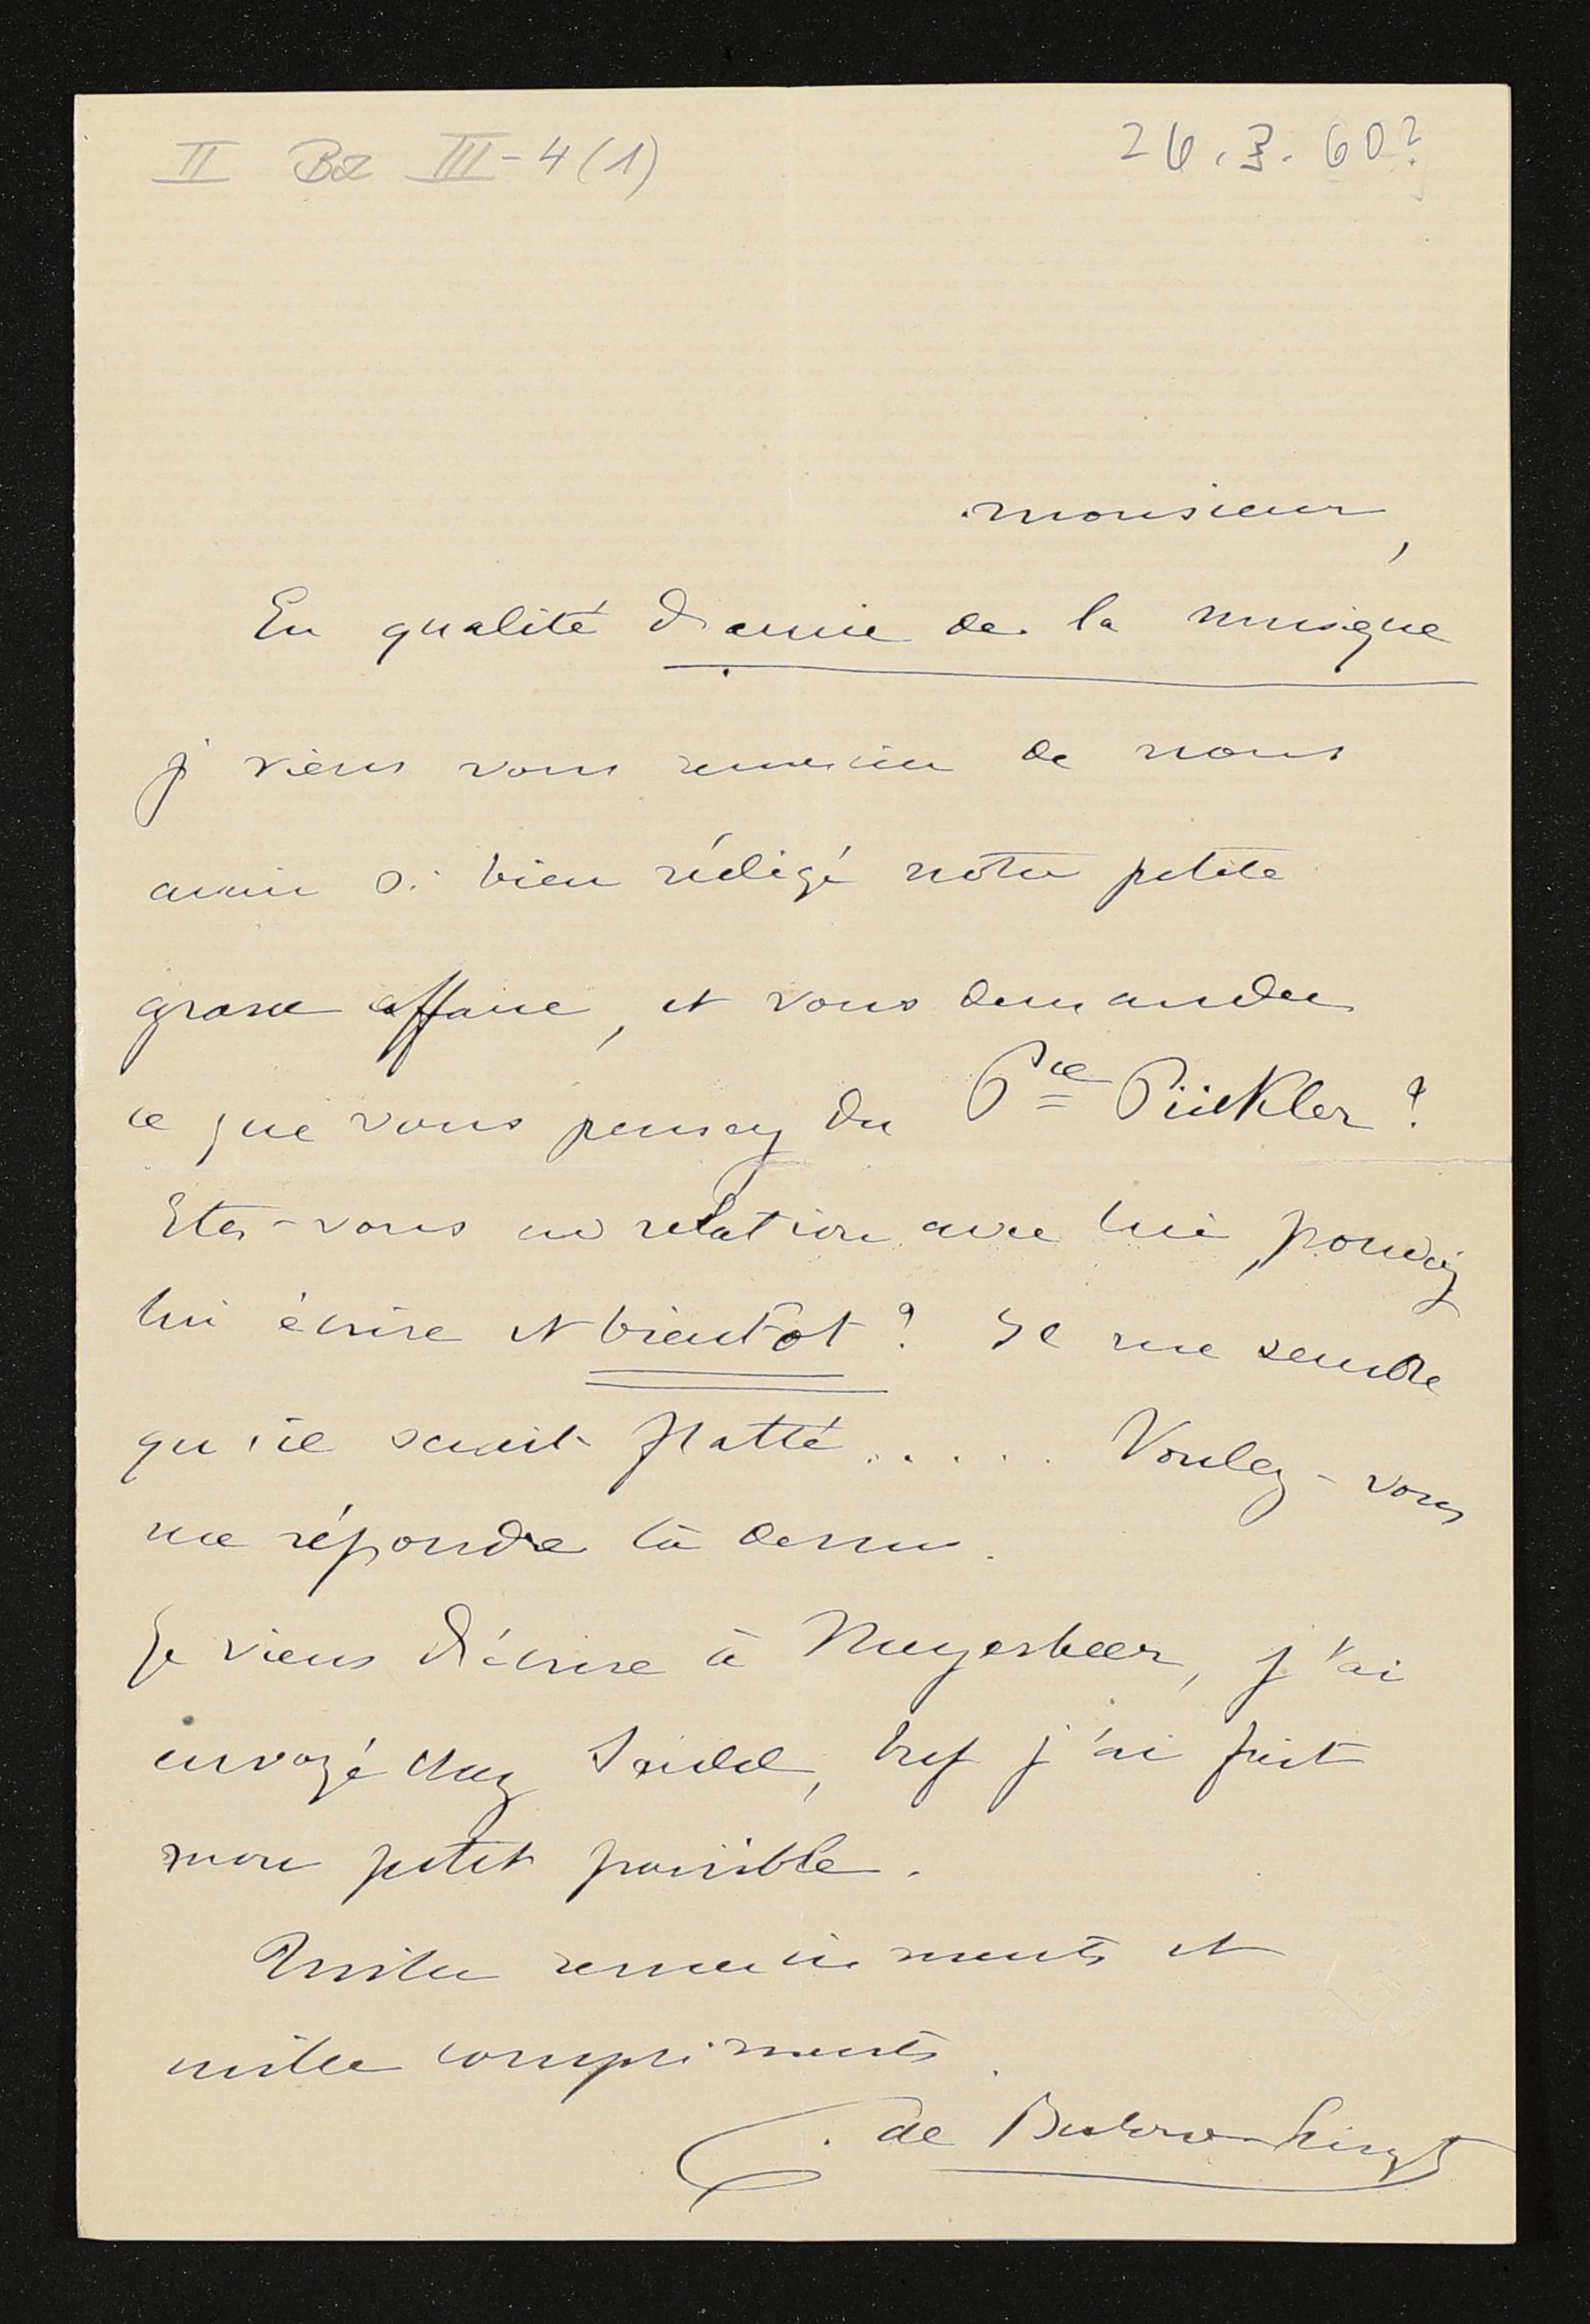 II Bz III-4(1)
26.3.60?
Monsieur,
En qualité d'amie de la musique
je viens vous remercier de nous
avoir si bien rédigé notre petite
grosse affaire, et vous demander
ce que vous pensez du Pce Pückler?
Etes-vous en relation avec lui, pouvez
lui écrire et bientot? Il me semble
qu'il serait flatté..... Voulez-vous
me répondre là dessus.
Je viens d'écrire à Meyerbeer, j'ai
envoyé chez Seidel, bref j'ai fait
mon petit possible.
Mille remerciments et
mille compliments.
C. de Bulow-Liszt